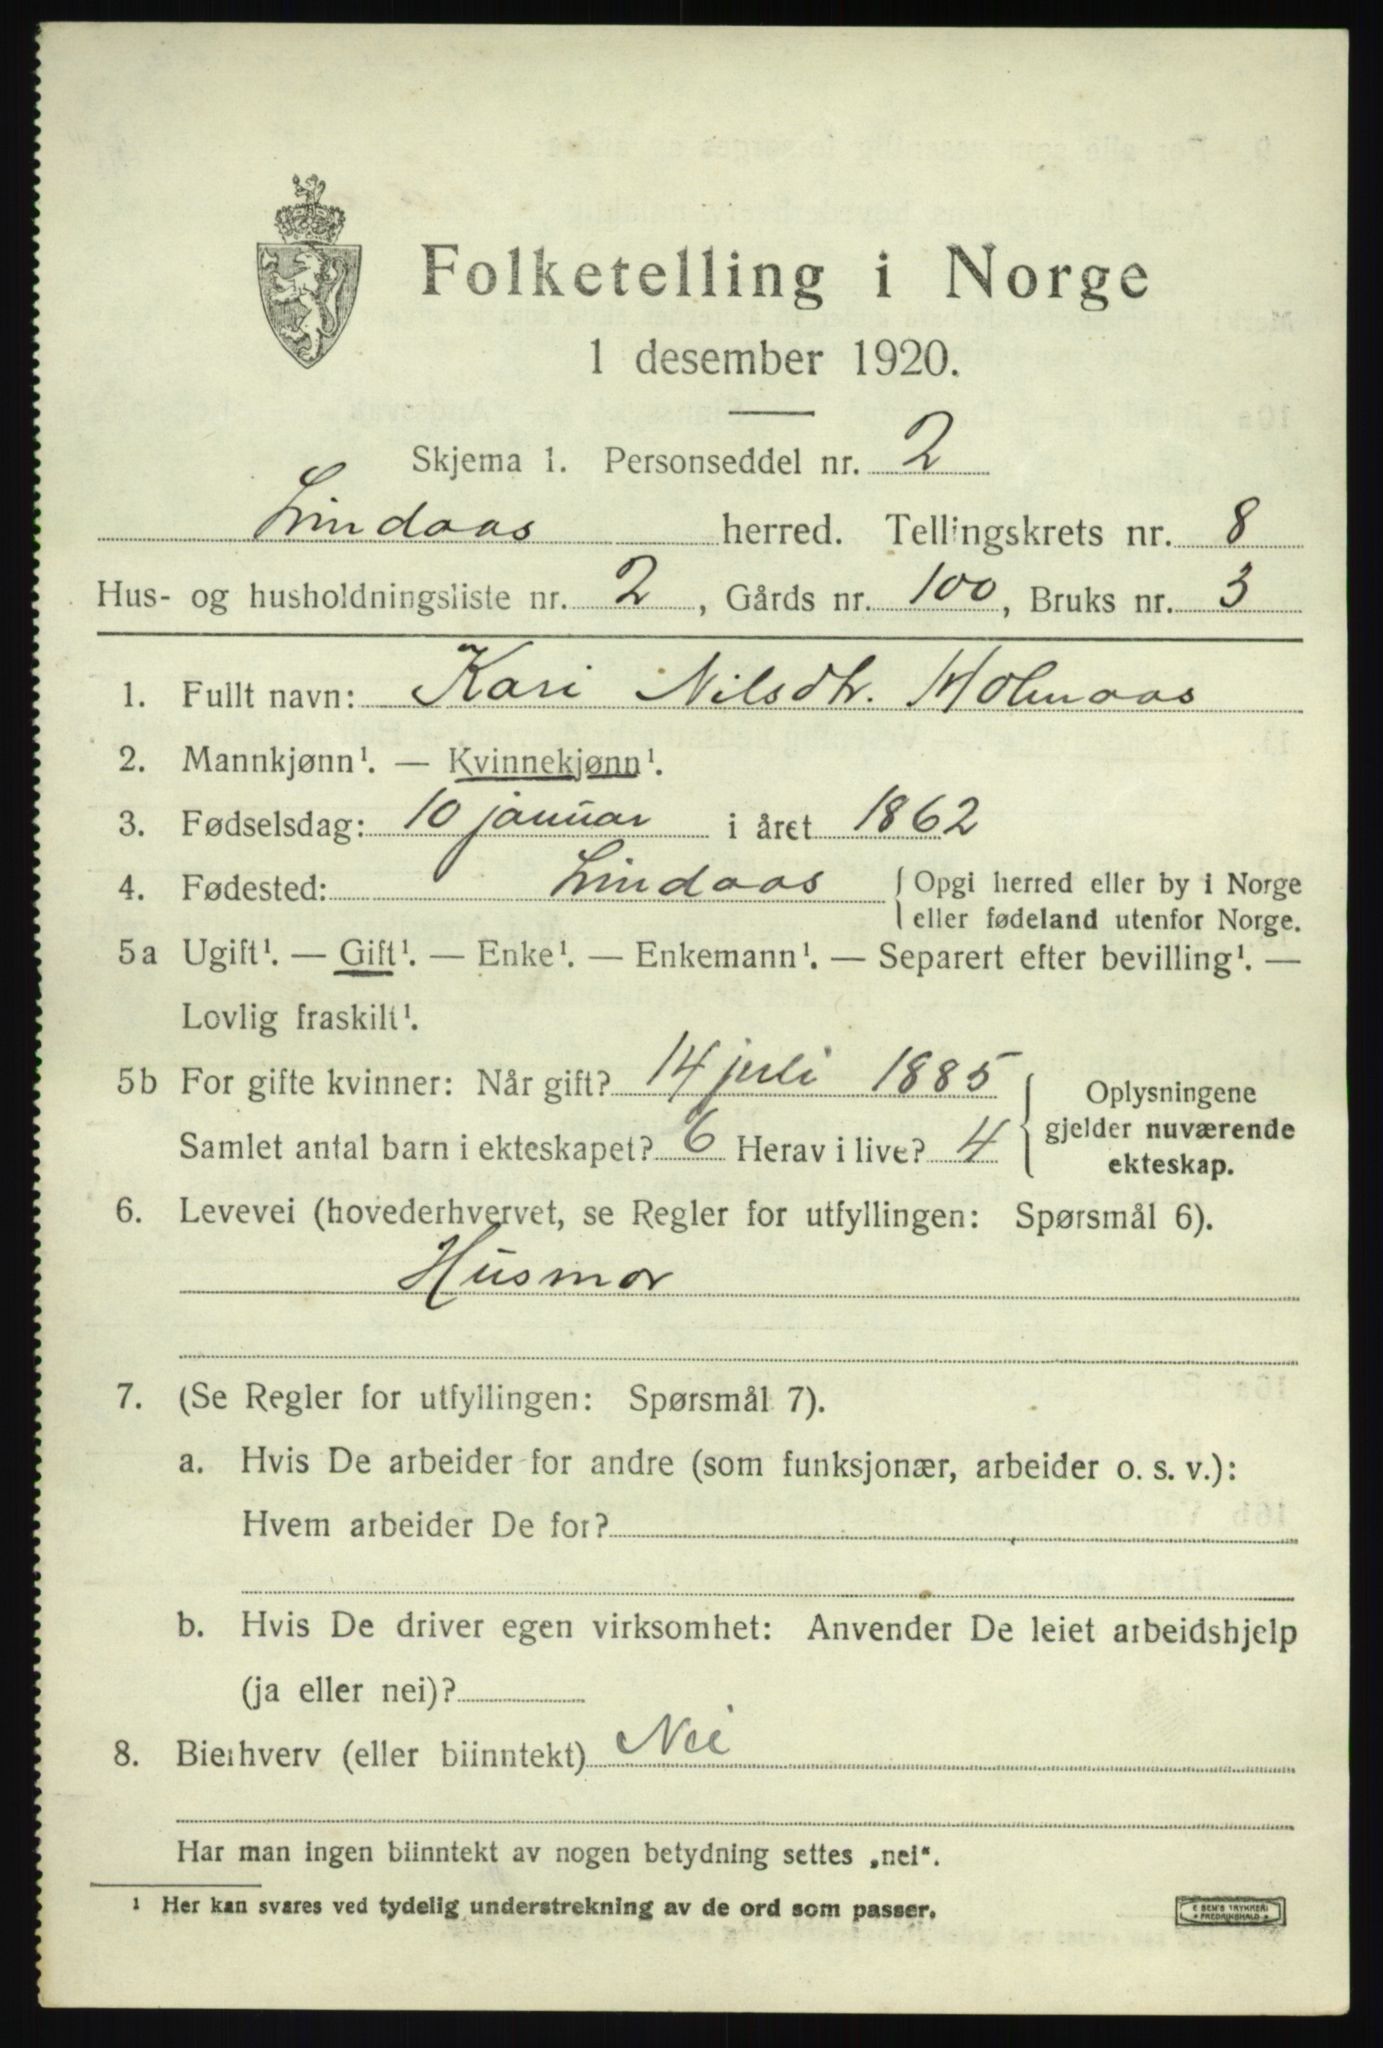 Folketelling i Norge
1 desember 1920.
Skjema 1. Personseddel nr. 2
Lindaas herred. Tellingskrets nr. 8
Hus- og husholdningsliste nr. 2, Gårds nr. 100, Bruks nr. 3
1. Fullt navn: Kari Nilsdtr. Molmaas
2. Mannkjønn¹. — Kvinnekjønn¹.
3. Fødselsdag: 10 januar i året 1862
4. Fødested: Lindaas { Opgi herred eller by i Norge
eller fødeland utenfor Norge.
5a Ugift¹. — Gift¹. — Enke¹. — Enkemann¹. — Separert efter bevilling¹. —
Lovlig fraskilt¹.
5b For gifte kvinner: Når gift? 14 juli 1885 { Oplysningene
Samlet antal barn i ekteskapet? 6 Herav i live? 4 gjelder nuværende
ekteskap.
6. Levevei (hovederhvervet, se Regler for utfyllingen: Spørsmål 6).
Husmor
7. (Se Regler for utfyllingen: Spørsmål 7).
a. Hvis De arbeider for andre (som funksjonær, arbeider o. s. v.):
Hvem arbeider De for?
b. Hvis De driver egen virksomhet: Anvender De leiet arbeidshjelp
(ja eller nei)?
8. Bierhverv (eller biinntekt) Nei
Har man ingen biinntekt av nogen betydning settes „nei“.
¹ Her kan svares ved tydelig understrekning av de ord som passer.
E SEM'S TRYKKERI
FREDRIKSHALD